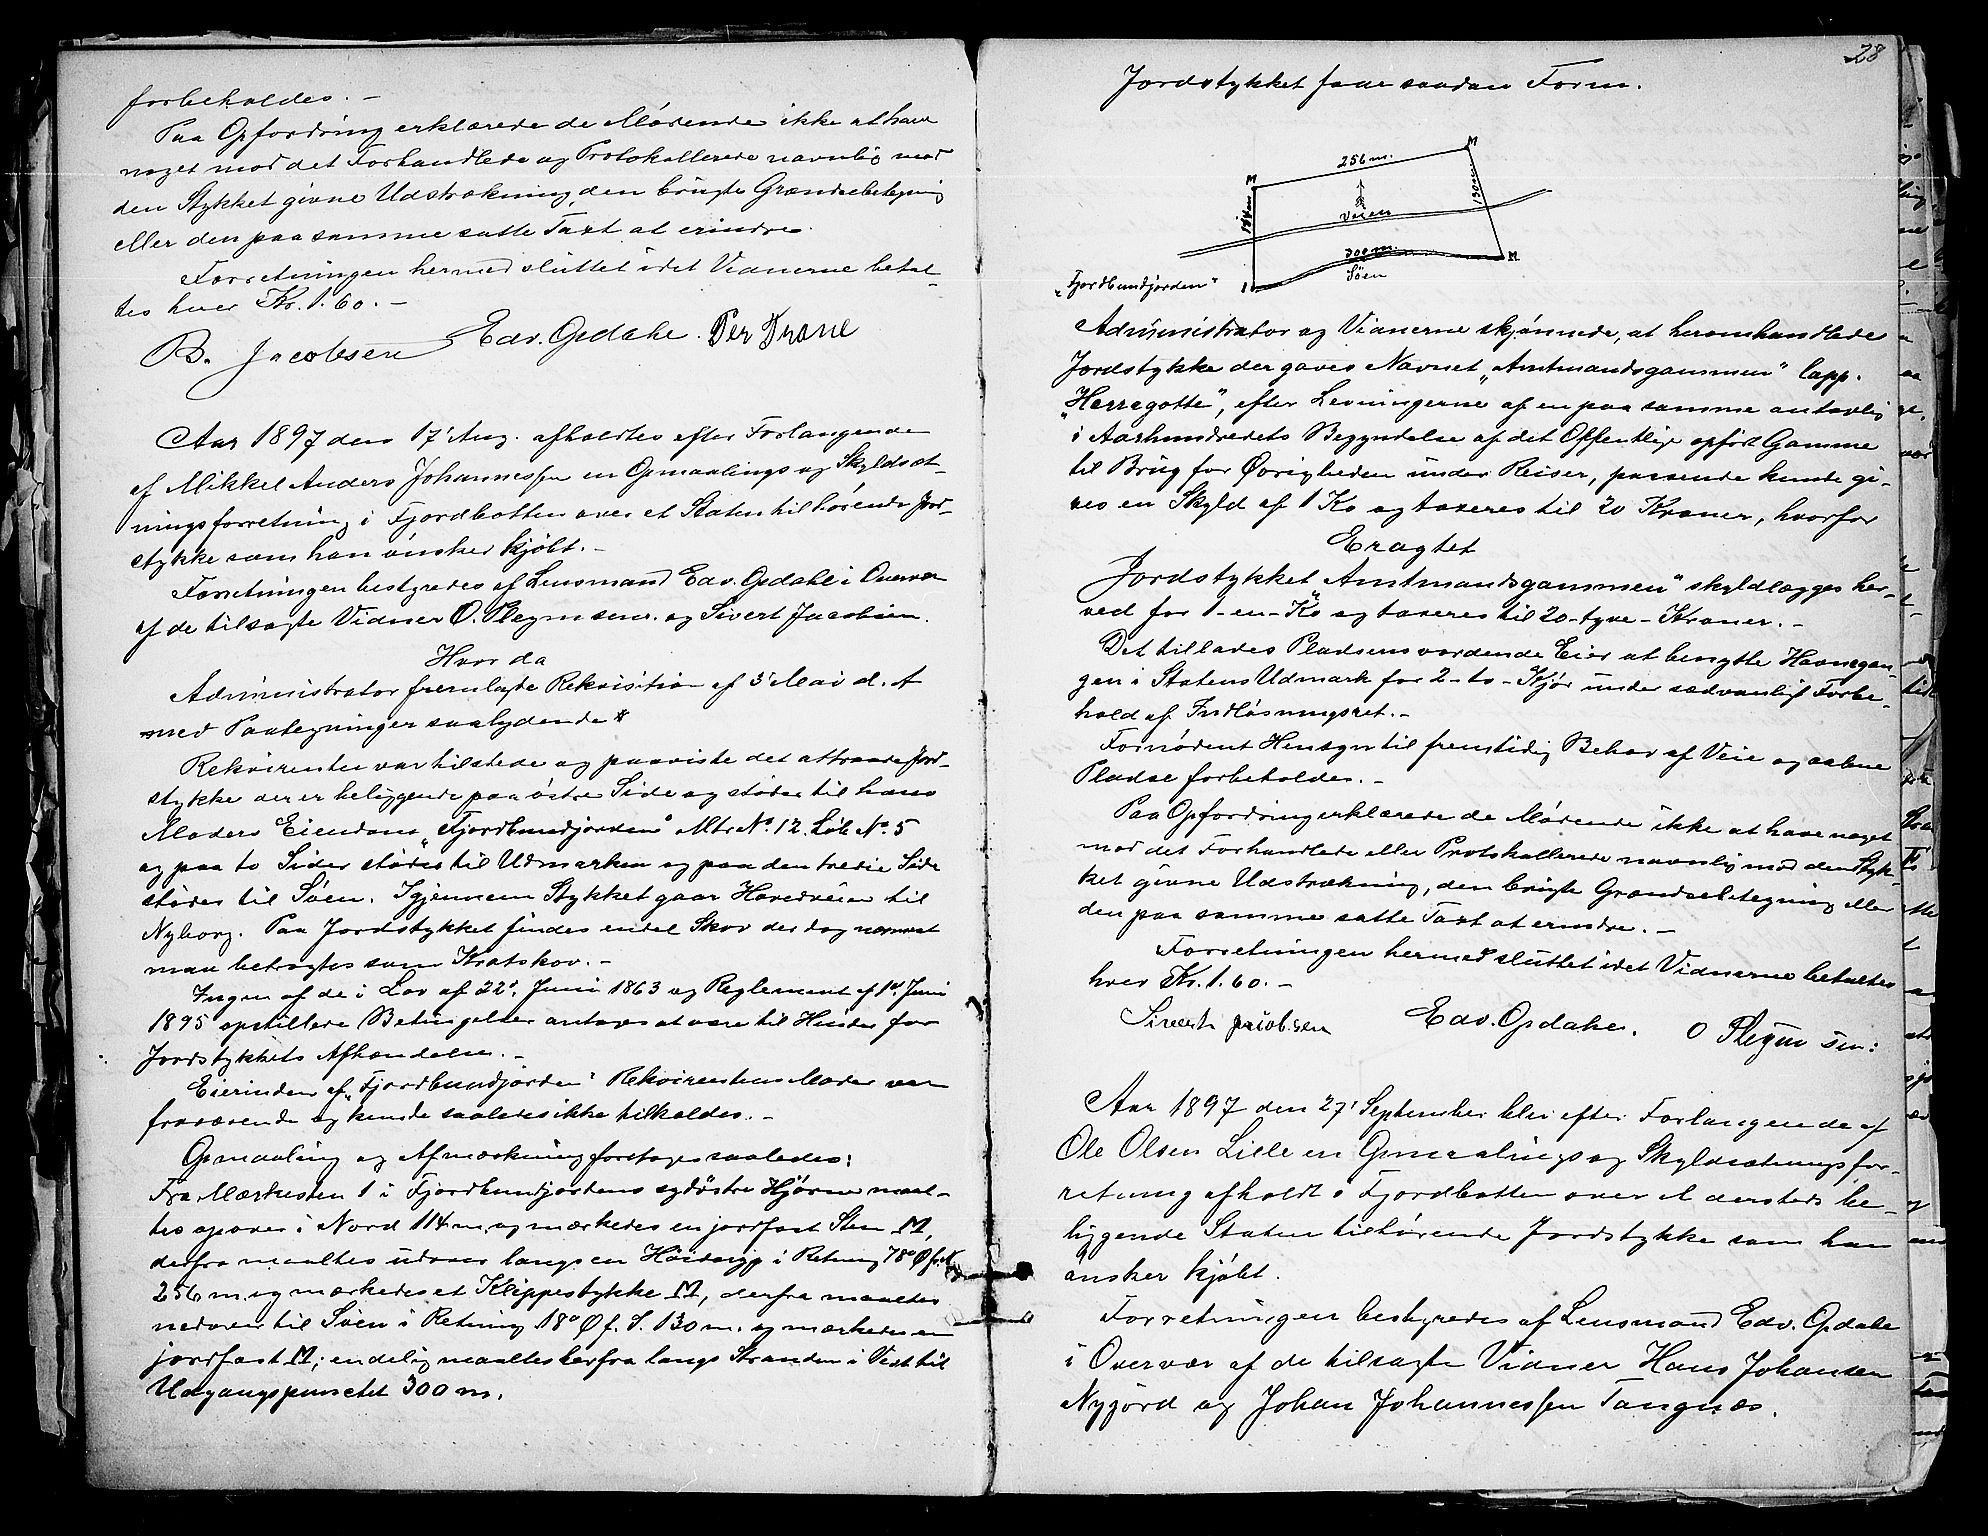 forbeholdes. –
Paa Opfordring erklærede de Mødende ikke at have
noget mod det Forhandlede og Protokollerede navnlig mod
den Stykket givne Udstrækning, den brugte Grændsebetegning
eller den paa samme satte Taxt at erindre.
Forretningen hermed sluttet idet Vidnerne betal-
tes hver Kr. 1.60. –
B. Jacobsen Edv. Opdahl. Per Trane
Aar 1897 den 17' Aug. afholdtes efter Forlangende
af Mikkel Anders Johannessen en Opmaalings og Skyldsæt-
ningsforretning i Fjordbotten over et Staten tilhörende Jord-
stykke som han önsker kjöbt. –
Forretningen bestyredes af Lensmand Edv. Opdahl i Overvær
af de tilsagte Vidner O. Plegm senr. og Sivert Jacobsen.
Hvor da
Administrator fremlagte Rekvisition af 3' Mai d. A
med Paategninger saalydende *
Rekvirenten var tilstede og paaviste det attraaede Jord-
stykke der er beliggende paa östre Side og stöder til hans
Moders Eiendom „Fjordbundjorden" Mtr No. 12. Löb No. 5
og paa to Sider stödes til Udmarken og paa den tredie Side
stödes til Söen. Igjennem Stykket gaar Hovedveien til
Nyborg. Paa Jordstykket findes endel Skov der dog nærmest
maa betragtes som Kratskov. –
Ingen af de i Lov af 22d. Juni 1863 og Reglement af 1d Juni
1895 opstillede Betingelser antoges at være til Hinder for
Jordstykkets Afhændelse. –
Eierinden af „Fjordbundjorden" Rekvirentens Moder var
fraværende og kunde saaledes ikke tilkaldes. –
Opmaaling og Afmærkning foretoges saaledes:
Fra Mærkesten 1 i Fjordbundjordens sydöstre Hjörne maal-
tes opover i Nord 114 m. og mærkedes en jordfast Sten M,
derfra maaltes udover langs en Höideryg i Retning 78° Ø f. N
256 m. og mærkedes et Klippestykke M, derfra maaltes
nedover til Söen i Retning 18° Ø f. S. 130 m. og mærkedes en
jordfast M; endelig maaltes herfra langs Stranden i Vest til
Udgangspunctet 300 m.
28
Jordstykket faae saadan Form.
M
256 m.
M
114 m
130 m.
Veien
300 m.
Söen
M
„Fjordbundjorden"
1
Administrator og Vidnerne skjønnede, at heromhandlede
Jordstykke der gaves Navnet „Amtmandsgammen" lapp.
„Herragotte", efter Levningerne af en paa samme antagelig
i Aarhundredets Begyndelse af det Offentlige opført Gamme
til Brug for Øvrigheden under Reiser, passende kunde gi-
ves en Skyld af 1 Ko og taxeres til 20 Kroner, hvorfor
Eragtet
Jordstykket „Amtmandsgammen" skyldlægges her-
ved for 1-en-Ko og taxeres til 20-tyve-Kroner. –
Det tillades Pladsens vordende Eier at benytte Havnegan-
gen i Statens Udmark for 2-to-Kjör under sædvanligt Forbe-
hold af Indlösningsret. –
Fornødent Hensyn til fremtidig Behov af Veie og aabne
Pladse forbeholdes. –
Paa Opfordring erklærede de Mødende ikke at have noget
mod det Forhandlede eller Protokollerede navnlig mod den Styk-
ket givne Udstrækning, den brugte Grændsebetegning eller
den paa samme satte Taxt at erindre. –
Forretningen hermed sluttet idet Vidnerne betaltes
hver Kr. 1.60. –
Sivert jacobsen Edv. Opdahl. O Plegm sen:
Aar 1897 den 27' September blev efter Forlangende af
Ole Olsen Lille en Opmaalings og Skyldsætningsfor-
retning afholdt i Fjordbotten over et dersteds be-
liggende Staten tilhørende Jordstykke som han
önsker kjöbt.
Forretningen bestyredes af Lensmand Edv. Opdahl
i Overvær af de tilsagte Vidner Hans Johansen
Nyjord og Johan Johannessen Tangnæs.